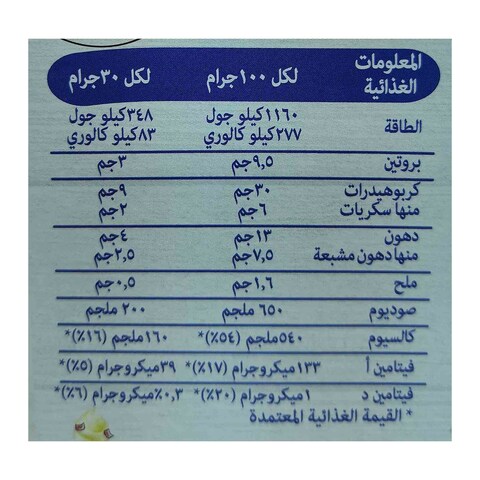 المعلومات الغذائية لكل ١٠٠جرام لكل ٣٠جرام
الطاقة ١١٦٠كيلو جول ٣٤٨كيلو جول
٢٧٧كيلو كالوري ٨٣كيلو كالوري
بروتين ٩,٥جم ٣جم
كربوهيدرات ٣٠جم ٩جم
منها سكريات ٦جم ٢جم
دهون ١٣جم ٤جم
منها دهون مشبعة ٧,٥جم ٢,٥جم
ملح ١,٦جم ٠,٥جم
صوديوم ٦٥٠ ملجم ٢٠٠ ملجم
كالسيوم ٥٤٠ملجم (٥٤٪)* ١٦٠ملجم (١٦٪)*
فيتامين أ ١٣٣ميكروجرام (١٧٪)* ٣٩ميكروجرام (٥٪)*
فيتامين د ١ميكروجرام (٢٠٪)* ٠,٣٪ميكروجرام (٦٪)*
* القيمة الغذائية المعتمدة